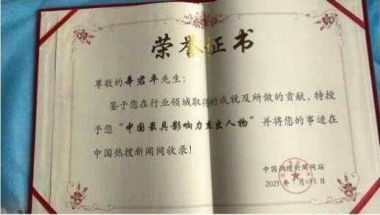 荣誉证书
尊敬的芈君平先生:
鉴于您在行业领域取得的成就及所做的贡献,特授
于您“中国最具影响力杰出人物”并将您的事迹在
中国热搜新闻网收录!
中国热搜新闻网站
2021年7月15日